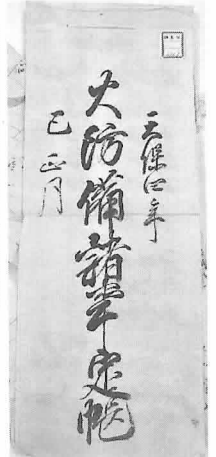 天保四年
火防備諸事定帳
巳正月